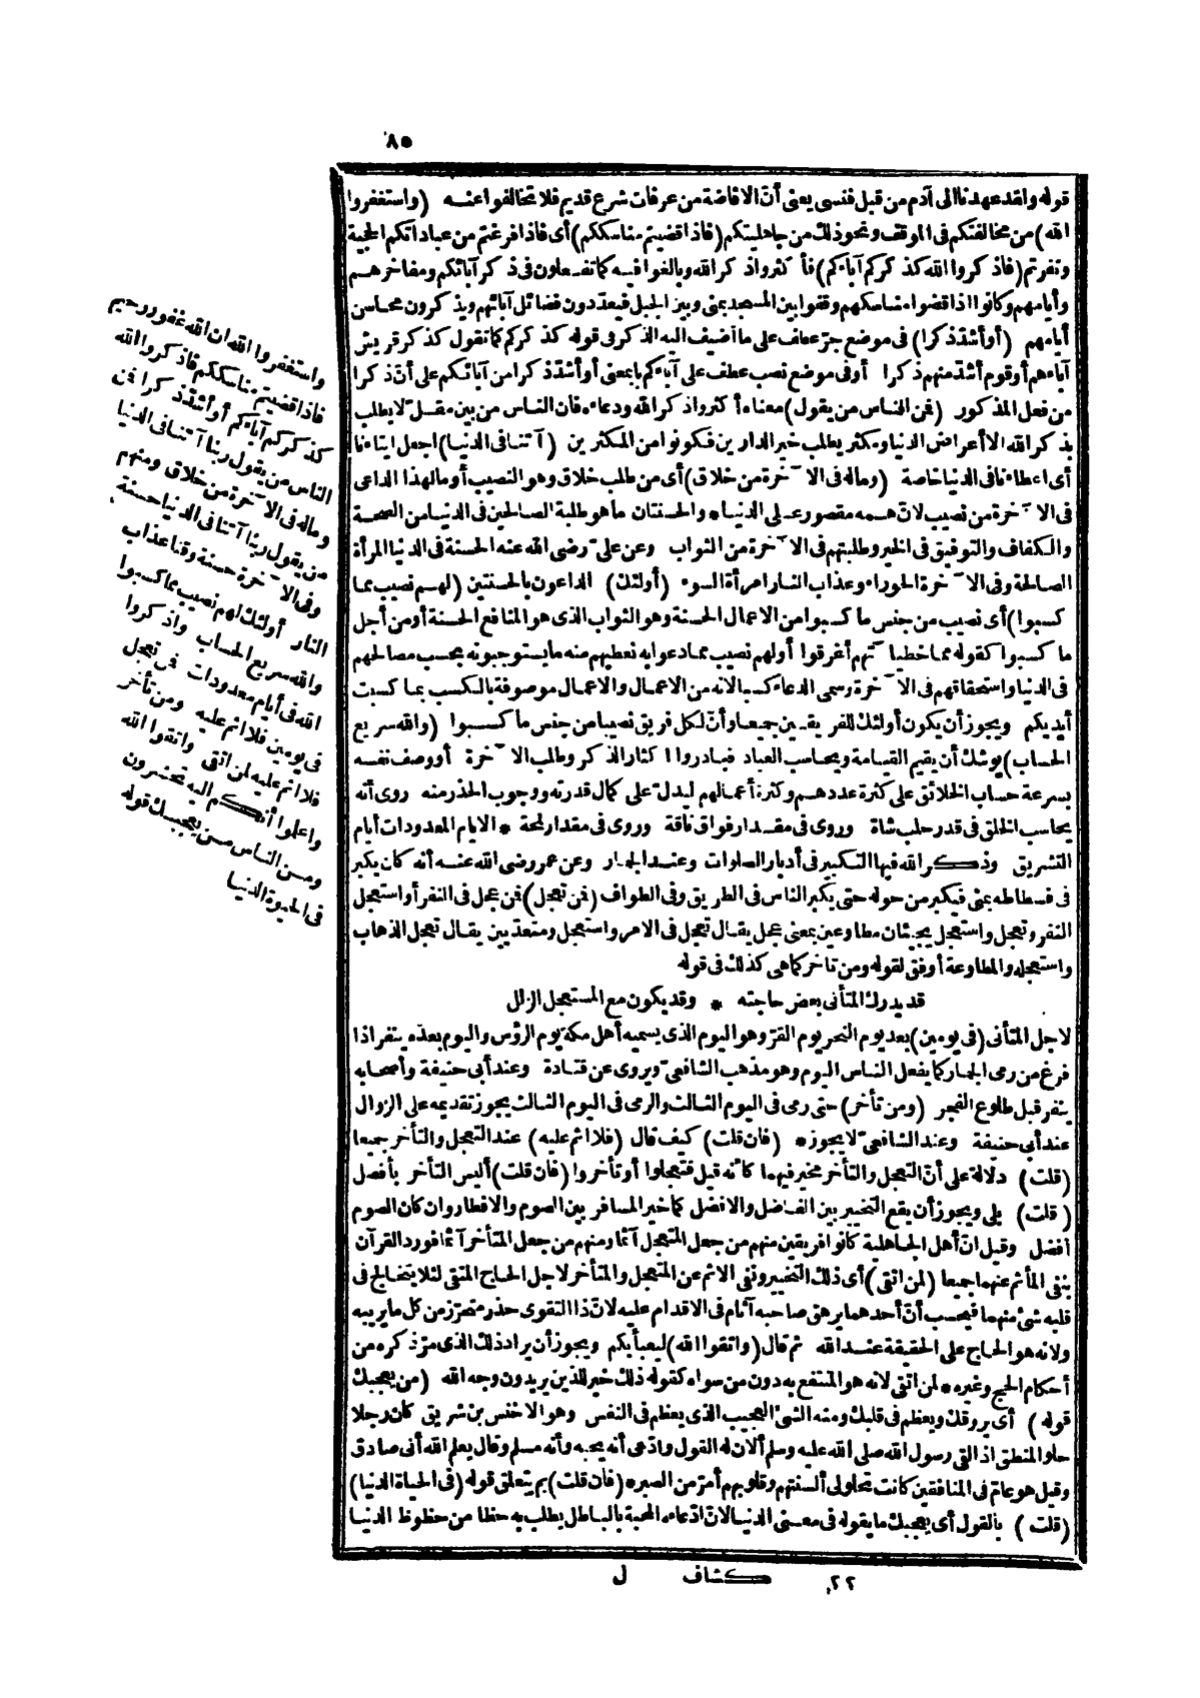 ٨٥
قوله ولقد عهدنا الى آدم من قبل فنسى يعنى أنّ الافاضة من عرفات شرع قديم فلا تخالفوا عنه (واستغفروا
الله) من مخالفتكم فى الموقف ونحو ذلك من جاهليتكم (فاذا قضيتم مناسككم) أى فاذا فرغتم من عباداتكم الحجية
ونفرتم (فاذكروا الله كذكركم آباءكم) فأكثروا ذكر الله وبالغوا فيه كما تفعلون فى ذكر آبائكم ومفاخرهم
وأيامهم وكانوا اذا قضوا مناسكهم وقفوا بين المسجد بمنى وبين الجبل فيعدّدون فضائل آبائهم ويذكرون محاسن
أيامهم (أو أشدّ ذكرا) فى موضع جرّ عطف على ما أضيف اليه الذكر فى قوله كذكركم كما تقول كذكر قريش
آباءهم أو قوم أشدّ منهم ذكرا أو فى موضع نصب عطف على آباءكم بمعنى أو أشدّ ذكرا من آبائكم على أنّ ذكرا
من فعل المذكور (فمن الناس من يقول) معناه أكثروا ذكر الله ودعاءه فان الناس من بين مقلّ لا يطلب
بذكر الله الا أعراض الدنيا ومكثر يطلب خير الدارين فكونوا من المكثرين (آتنا فى الدنيا) اجعل ايتاءنا
أى اعطاءنا فى الدنيا خاصة (وماله فى الآخرة من خلاق) أى من طلب خلاق وهو النصيب أو ما لهذا الداعى
فى الآخرة من نصيب لانّ همه مقصور على الدنيا * والحسنتان ما هو طلبة الصالحين فى الدنيا من الصحة
والكفاف والتوفيق فى الخير وطلبتهم فى الآخرة من الثواب وعن علىّ رضى الله عنه الحسنة فى الدنيا المرأة
الصالحة وفى الآخرة الحوراء وعذاب النار امرأة السوء (أولئك) الداعون بالحسنتين (لهم نصيب مما
كسبوا) أى نصيب من جنس ما كسبوا من الاعمال الحسنة وهو الثواب الذى هو المنافع الحسنة أو من أجل
ما كسبوا كقوله مما خطيآتهم أغرقوا أولهم نصيب مما دعوا به نعطيهم منه ما يستوجبونه بحسب مصالحهم
فى الدنيا واستحقاقهم فى الآخرة وسمى الدعاء كسبا لانه من الاعمال والاعمال موصوفة بالكسب بما كسبت
أيديكم ويجوز أن يكون أولئك للفريقين جميعا وأنّ لكل فريق نصيبا من جنس ما كسبوا (والله سريع
الحساب) يوشك أن يقيم القيامة ويحاسب العباد فبادروا اكثار الذكر وطلب الآخرة أو وصف نفسه
بسرعة حساب الخلائق على كثرة عددهم وكثرة أعمالهم ليدلّ على كمال قدرته ووجوب الحذر منه روى أنه
يحاسب الخلق فى قدر حلب شاة وروى فى مقدار فواق ناقة وروى فى مقدار لمحة * الايام المعدودات أيام
التشريق وذكر الله فيها التكبير فى أدبار الصلوات وعند الجمار وعن عمر رضى الله عنه أنه كان يكبر
فى فسطاطه بمنى فيكبر من حوله حتى يكبر الناس فى الطريق وفى الطواف (فمن تعجل) فمن عجل فى النفر أو استعجل
النفر وتعجل واستعجل يجيئان مطاوعين بمعنى عجل يقال تعجل فى الامر واستعجل ومتعدّيين يقال تعجل الذهاب
واستعجله والمطاوعة أوفق لقوله ومن تأخر كما هى كذلك فى قوله
قد يدرك المتأنى بعض حاجته * وقد يكون مع المستعجل الزلل
لاجل المتأنى (فى يومين) بعد يوم النحر يوم القرّ وهو اليوم الذى يسميه أهل مكة يوم الرؤس واليوم بعده ينفر اذا
فرغ من رمى الجمار كما يفعل الناس اليوم وهو مذهب الشافعىّ ويروى عن قتادة وعند أبى حنيفة وأصحابه
ينفر قبل طلوع الفجر (ومن تأخر) حتى رمى فى اليوم الثالث والرمى فى اليوم الثالث يجوز تقديمه على الزوال
عند أبى حنيفة وعند الشافعىّ لا يجوز * (فان قلت) كيف قال (فلا اثم عليه) عند التعجل والتأخر جميعا
(قلت) دلالة على أنّ التعجل والتأخر مخير فيهما كأنه قيل فتعجلوا أو تأخروا (فان قلت) أليس التأخر بأفضل
(قلت) بلى ويجوز أن يقع التخيير بين الفاضل والافضل كما خير المسافر بين الصوم والافطار وان كان الصوم
أفضل وقيل انّ أهل الجاهلية كانوا فريقين منهم من جعل المتعجل آثما ومنهم من جعل المتأخر آثما فورد القرآن
بنفى المأثم عنهما جميعا (لمن اتقى) أى ذلك التخيير ونفى الاثم عن المتعجل والمتأخر لاجل الحاج المتقى لئلا يتخالج فى
قلبه شئ منهما فيحسب أنّ أحدهما يرهق صاحبه آثام فى الاقدام عليه لانّ ذا التقوى حذر متحرّز من كل ما يريبه
ولانه هو الحاج على الحقيقة عند الله ثم قال (واتقوا الله) ليعبأ بكم ويجوز أن يراد ذلك الذى مرّ ذكره من
أحكام الحج وغيره * لمن اتقى لانه هو المنتفع به دون من سواه كقوله ذلك خير للذين يريدون وجه الله (من يعجبك
قوله) أى يروقك ويعظم فى قلبك ومنه الشئ العجيب الذى يعظم فى النفس وهو الاخنس بن شريق كان رجلا
حلو المنطق اذا لقى رسول الله صلى الله عليه وسلم ألان له القول وادّعى أنه يحبه وأنه مسلم وقال يعلم الله أنى صادق
وقيل هو عامّ فى المنافقين كانت تحلولى ألسنتهم وقلوبهم أمرّ من الصبر * (فان قلت) بم يتعلق قوله (فى الحياة الدنيا)
(قلت) بالقول أى يعجبك ما يقوله فى معنى الدنيا لانّ ادّعاءه المحبة بالباطل يطلب به حظا من حظوظ الدنيا
واستغفروا الله ان الله غفور رحيم
فاذا قضيتم مناسككم فاذكروا الله
كذكركم آباءكم أو أشدّ ذكرا فمن
الناس من يقول ربنا آتنا فى الدنيا
وماله فى الآخرة من خلاق ومنهم
من يقول ربنا آتنا فى الدنيا حسنة
وفى الآخرة حسنة وقنا عذاب
النار أولئك لهم نصيب مما كسبوا
والله سريع الحساب واذكروا
الله فى أيام معدودات فمن تعجل
فى يومين فلا اثم عليه ومن تأخر
فلا اثم عليه لمن اتقى واتقوا الله
واعلموا أنكم اليه تحشرون
ومن الناس من يعجبك قوله
فى الحيوة الدنيا
٢٢ كشاف ل